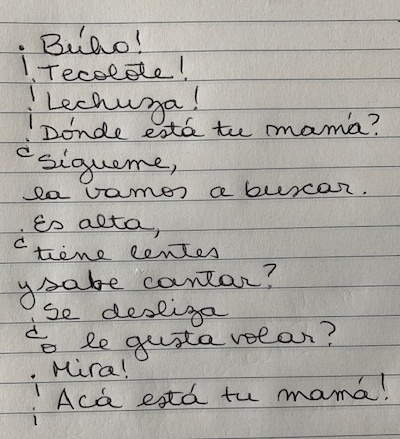 ¡Búho!
¡Tecolote!
¡Lechuza!
¿Dónde está tu mamá?
Sígueme,
la vamos a buscar.
¿Es alta,
tiene lentes
y sabe cantar?
¿Se desliza
o le gusta volar?
¡Mira!
¡Acá está tu mamá!